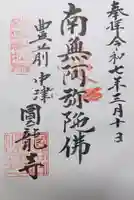 奉拝 令和七年三月十三
南無阿弥陀佛
豊前中津
圓龍寺